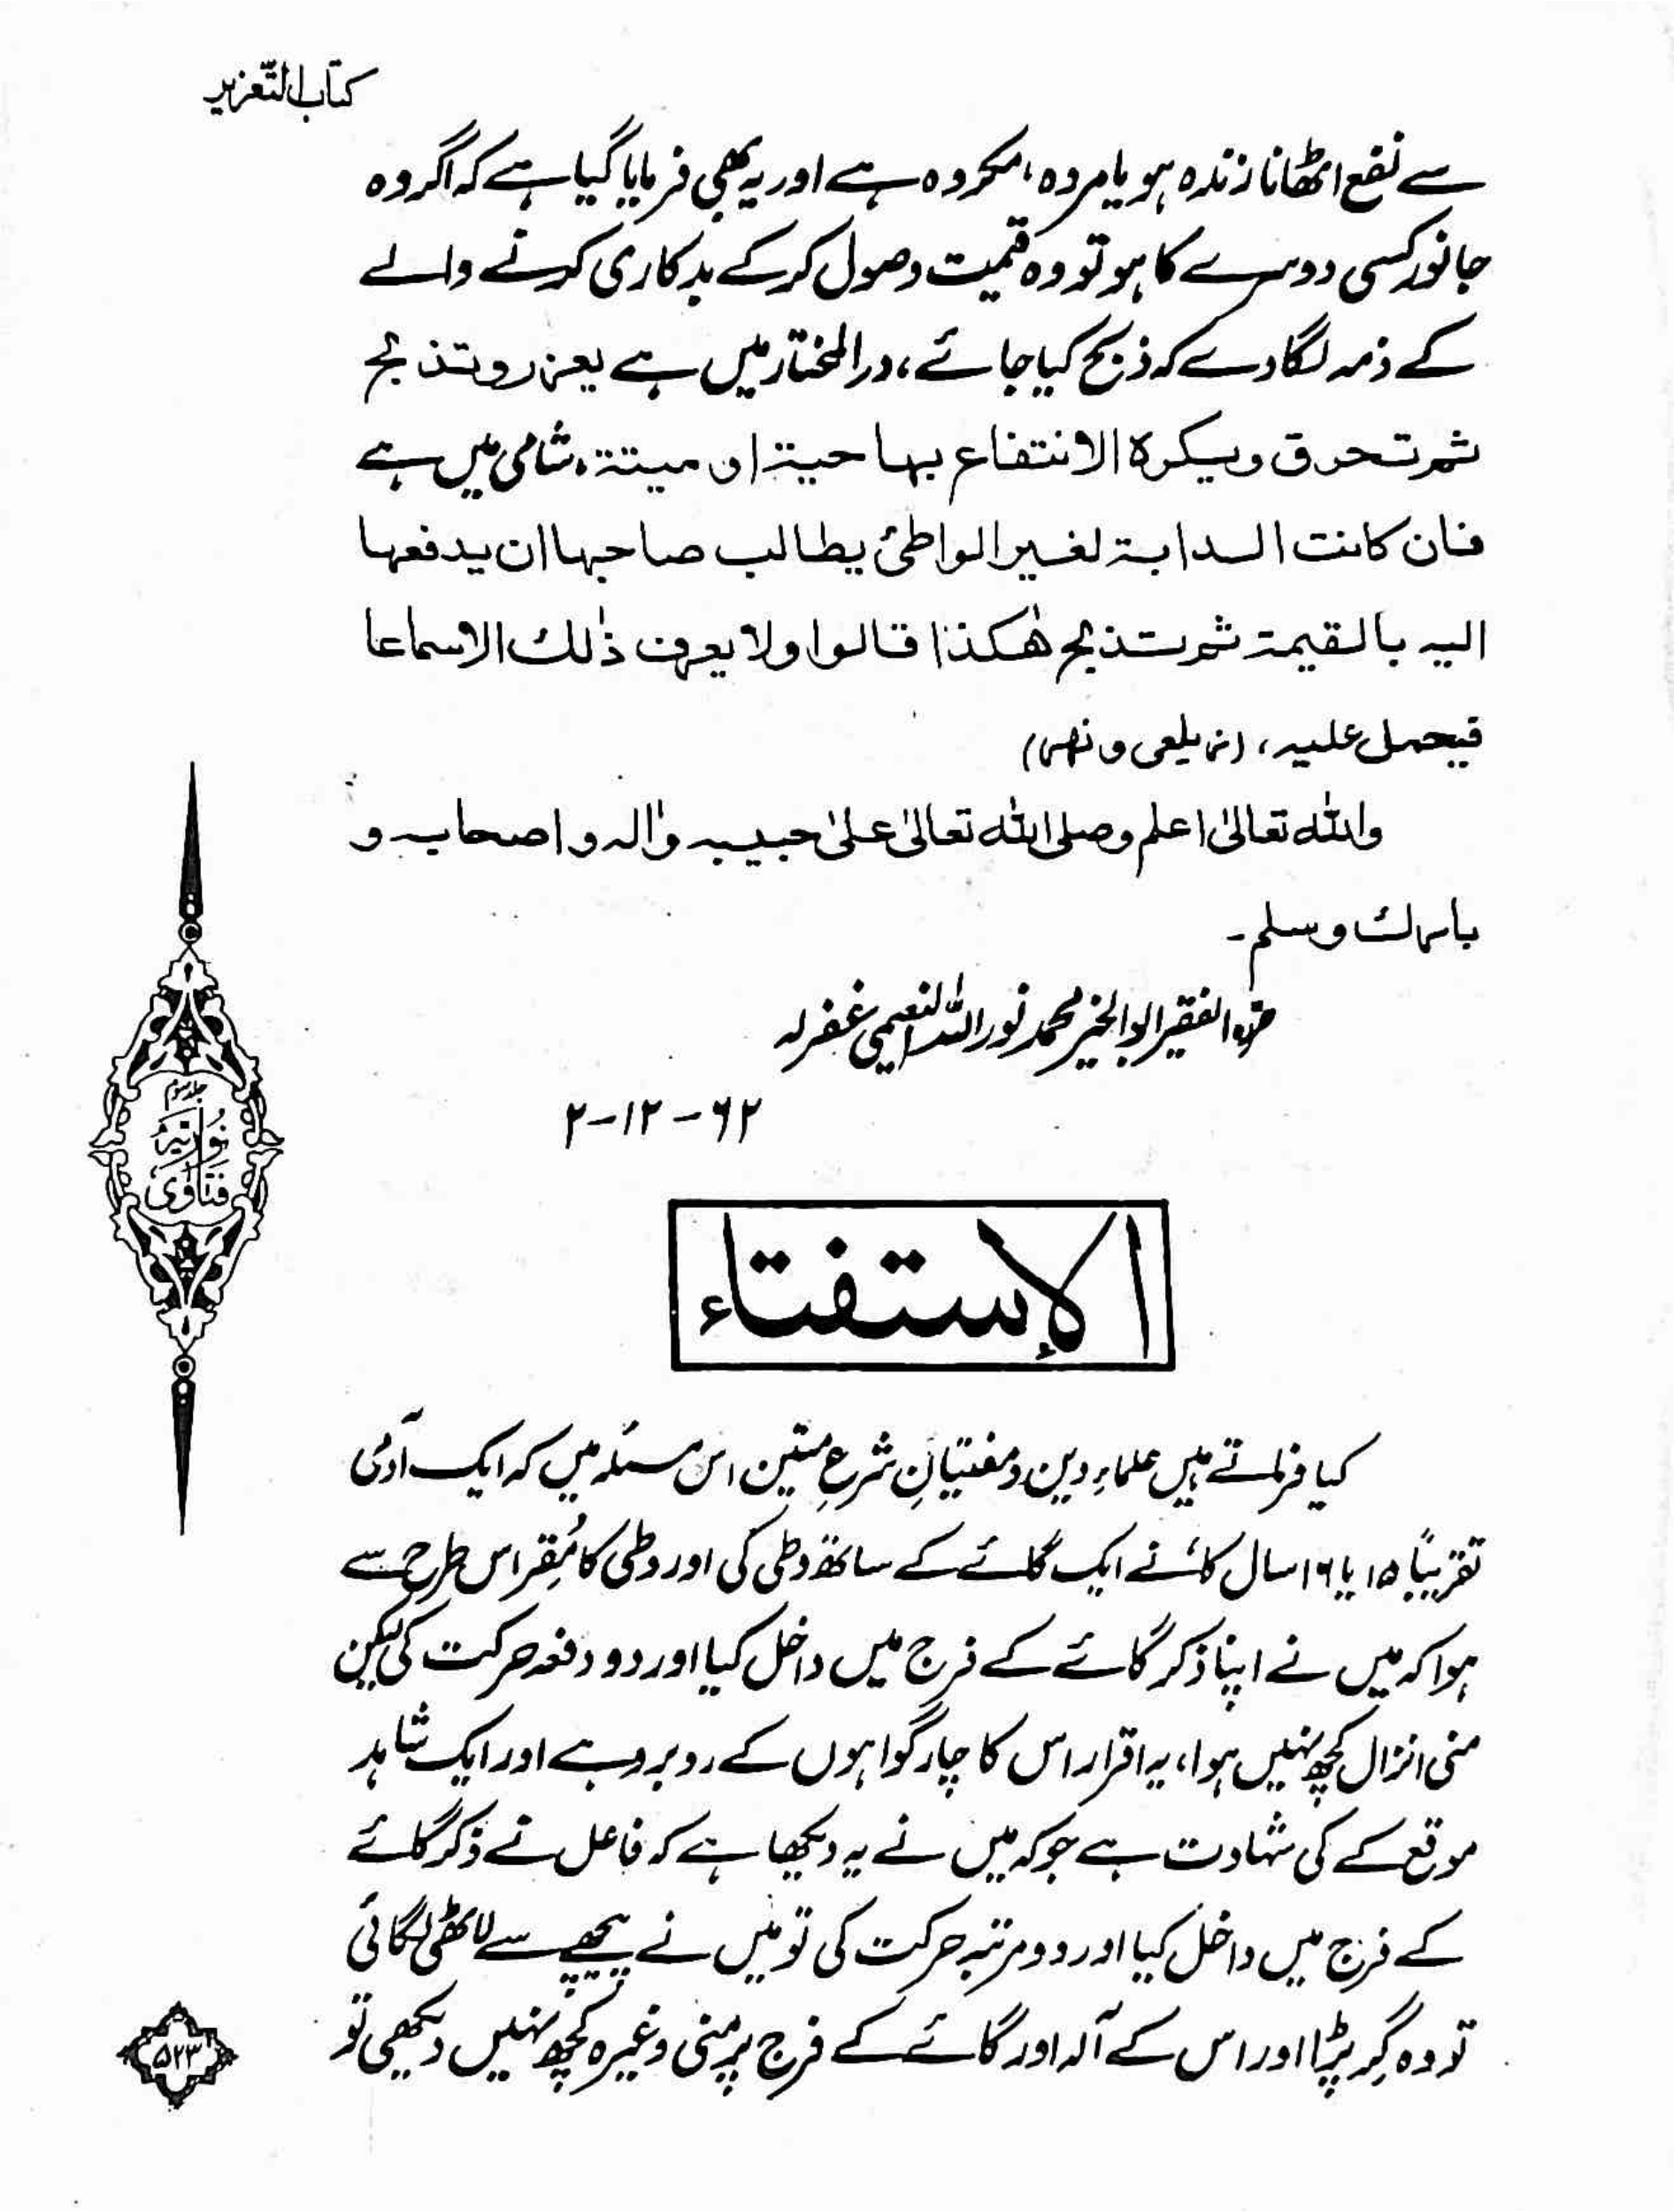 کتاب التعزیر
سے نفع اٹھانا زندہ ہو یا مردہ، مکروہ ہے اور یہ بھی فرمایا گیا ہے کہ اگر وہ
جانور کسی دوسرے کا ہو تو وہ قیمت وصول کرکے بدکاری کرنے والے
کے ذمہ لگا دے کہ ذبح کیا جائے، درالمختار میں ہے یعزر و تذبح
ثم تحرق ویکرہ الانتفاع بہا حیۃ او میتۃ، شامی میں ہے
فان کانت الدابۃ لغیر الواطئ یطالب صاحبہا ان یدفعہا
الیہ بالقیمۃ ثم تذبح ھٰکذا قالوا ولا یعرف ذٰلک الا سماعا
فیحمل علیہ، (زیلعی و نھر)
واللہ تعالیٰ اعلم وصلی اللہ تعالیٰ علیٰ حبیبہ واٰلہ و اصحابہ و
بارک وسلم۔
حرہ الفقیر ابوالخیر محمد نور اللہ النعیمی غفرلہ
۲-۱۲-۶۲
جلد سوم
نوریہ
فتاویٰ
الإستفتاء
کیا فرماتے ہیں علماءِ دین و مفتیانِ شرعِ متین اس مسئلہ میں کہ ایک آدمی
تقریباً ۱۵ یا ۱۶ سال کا، نے ایک گائے کے ساتھ وطی کی اور وطی کا مُقِر اس طرح سے
ہوا کہ میں نے اپنا ذکر گائے کے فرج میں داخل کیا اور دو دفعہ حرکت کی لیکن
منی انزال کچھ نہیں ہوا، یہ اقرار اس کا چار گواہوں کے روبرو ہے اور ایک شاہد
موقع کے کی شہادت ہے جو کہ میں نے یہ دیکھا ہے کہ فاعل نے ذکر گائے
کے فرج میں داخل کیا اور دو مرتبہ حرکت کی تو میں نے پیچھے سے لاٹھی لگائی
تو وہ گِر پڑا اور اس کے آلہ اور گائے کے فرج پر منی وغیرہ کچھ نہیں دیکھی تو
۵۲۳